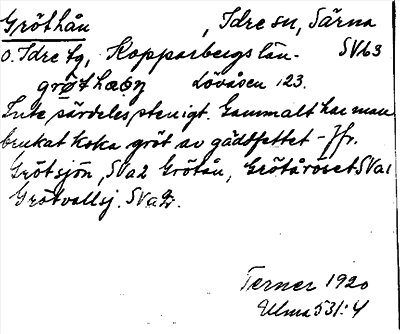 Gröthån , Idre sn, Särna
o. Idre tg, Kopparbergs län. SVb3
grøthæɔn Lövåsen 123.
Inte särdeles stenigt. Gammalt har man
brukat koka gröt av gäddfettet - Jfr.
Grötsjön, SVa2 Grötån, Grötåröset SVa1
Grötvallsj. SVa2.
Terner 1920
Ulma 531:4